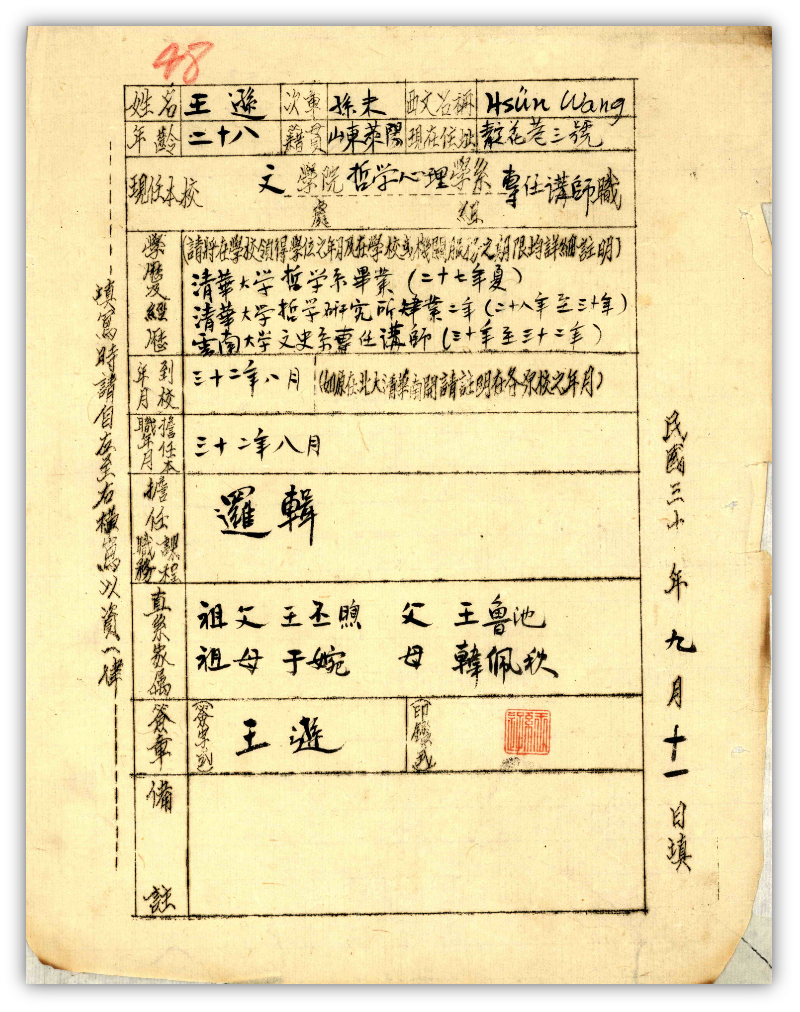 48
姓名 王遜 次章 孫未 西文名稱 Hsün Wang
年齡 二十八 籍貫 山東萊陽 現在住址 靛花巷三號
現任本校 文學院哲学心理學系專任講師職
處 組
學歷及經歷 (請將在學校領得學位之年月及在學校或機關服務之期限均詳細註明)
清華大学哲学系畢業(二十七年夏)
清華大学哲学研究所肄業二年(二十八年至三十年)
雲南大学文史系專任講師(三十年至三十二年)
到校年月 三十二年八月 (如原在北大清華南開請註明在各原校之年月)
擔任本職年月 三十二年八月
擔任課程職務 邏輯
直系家属 祖父 王丕煦 父 王魯池
祖母 于婉 母 韓佩秋
簽章 (簽字式) 王遜 (印鑑式)
備註
填寫時請自左至右橫寫以資一律
民國三十 年九月十一日填